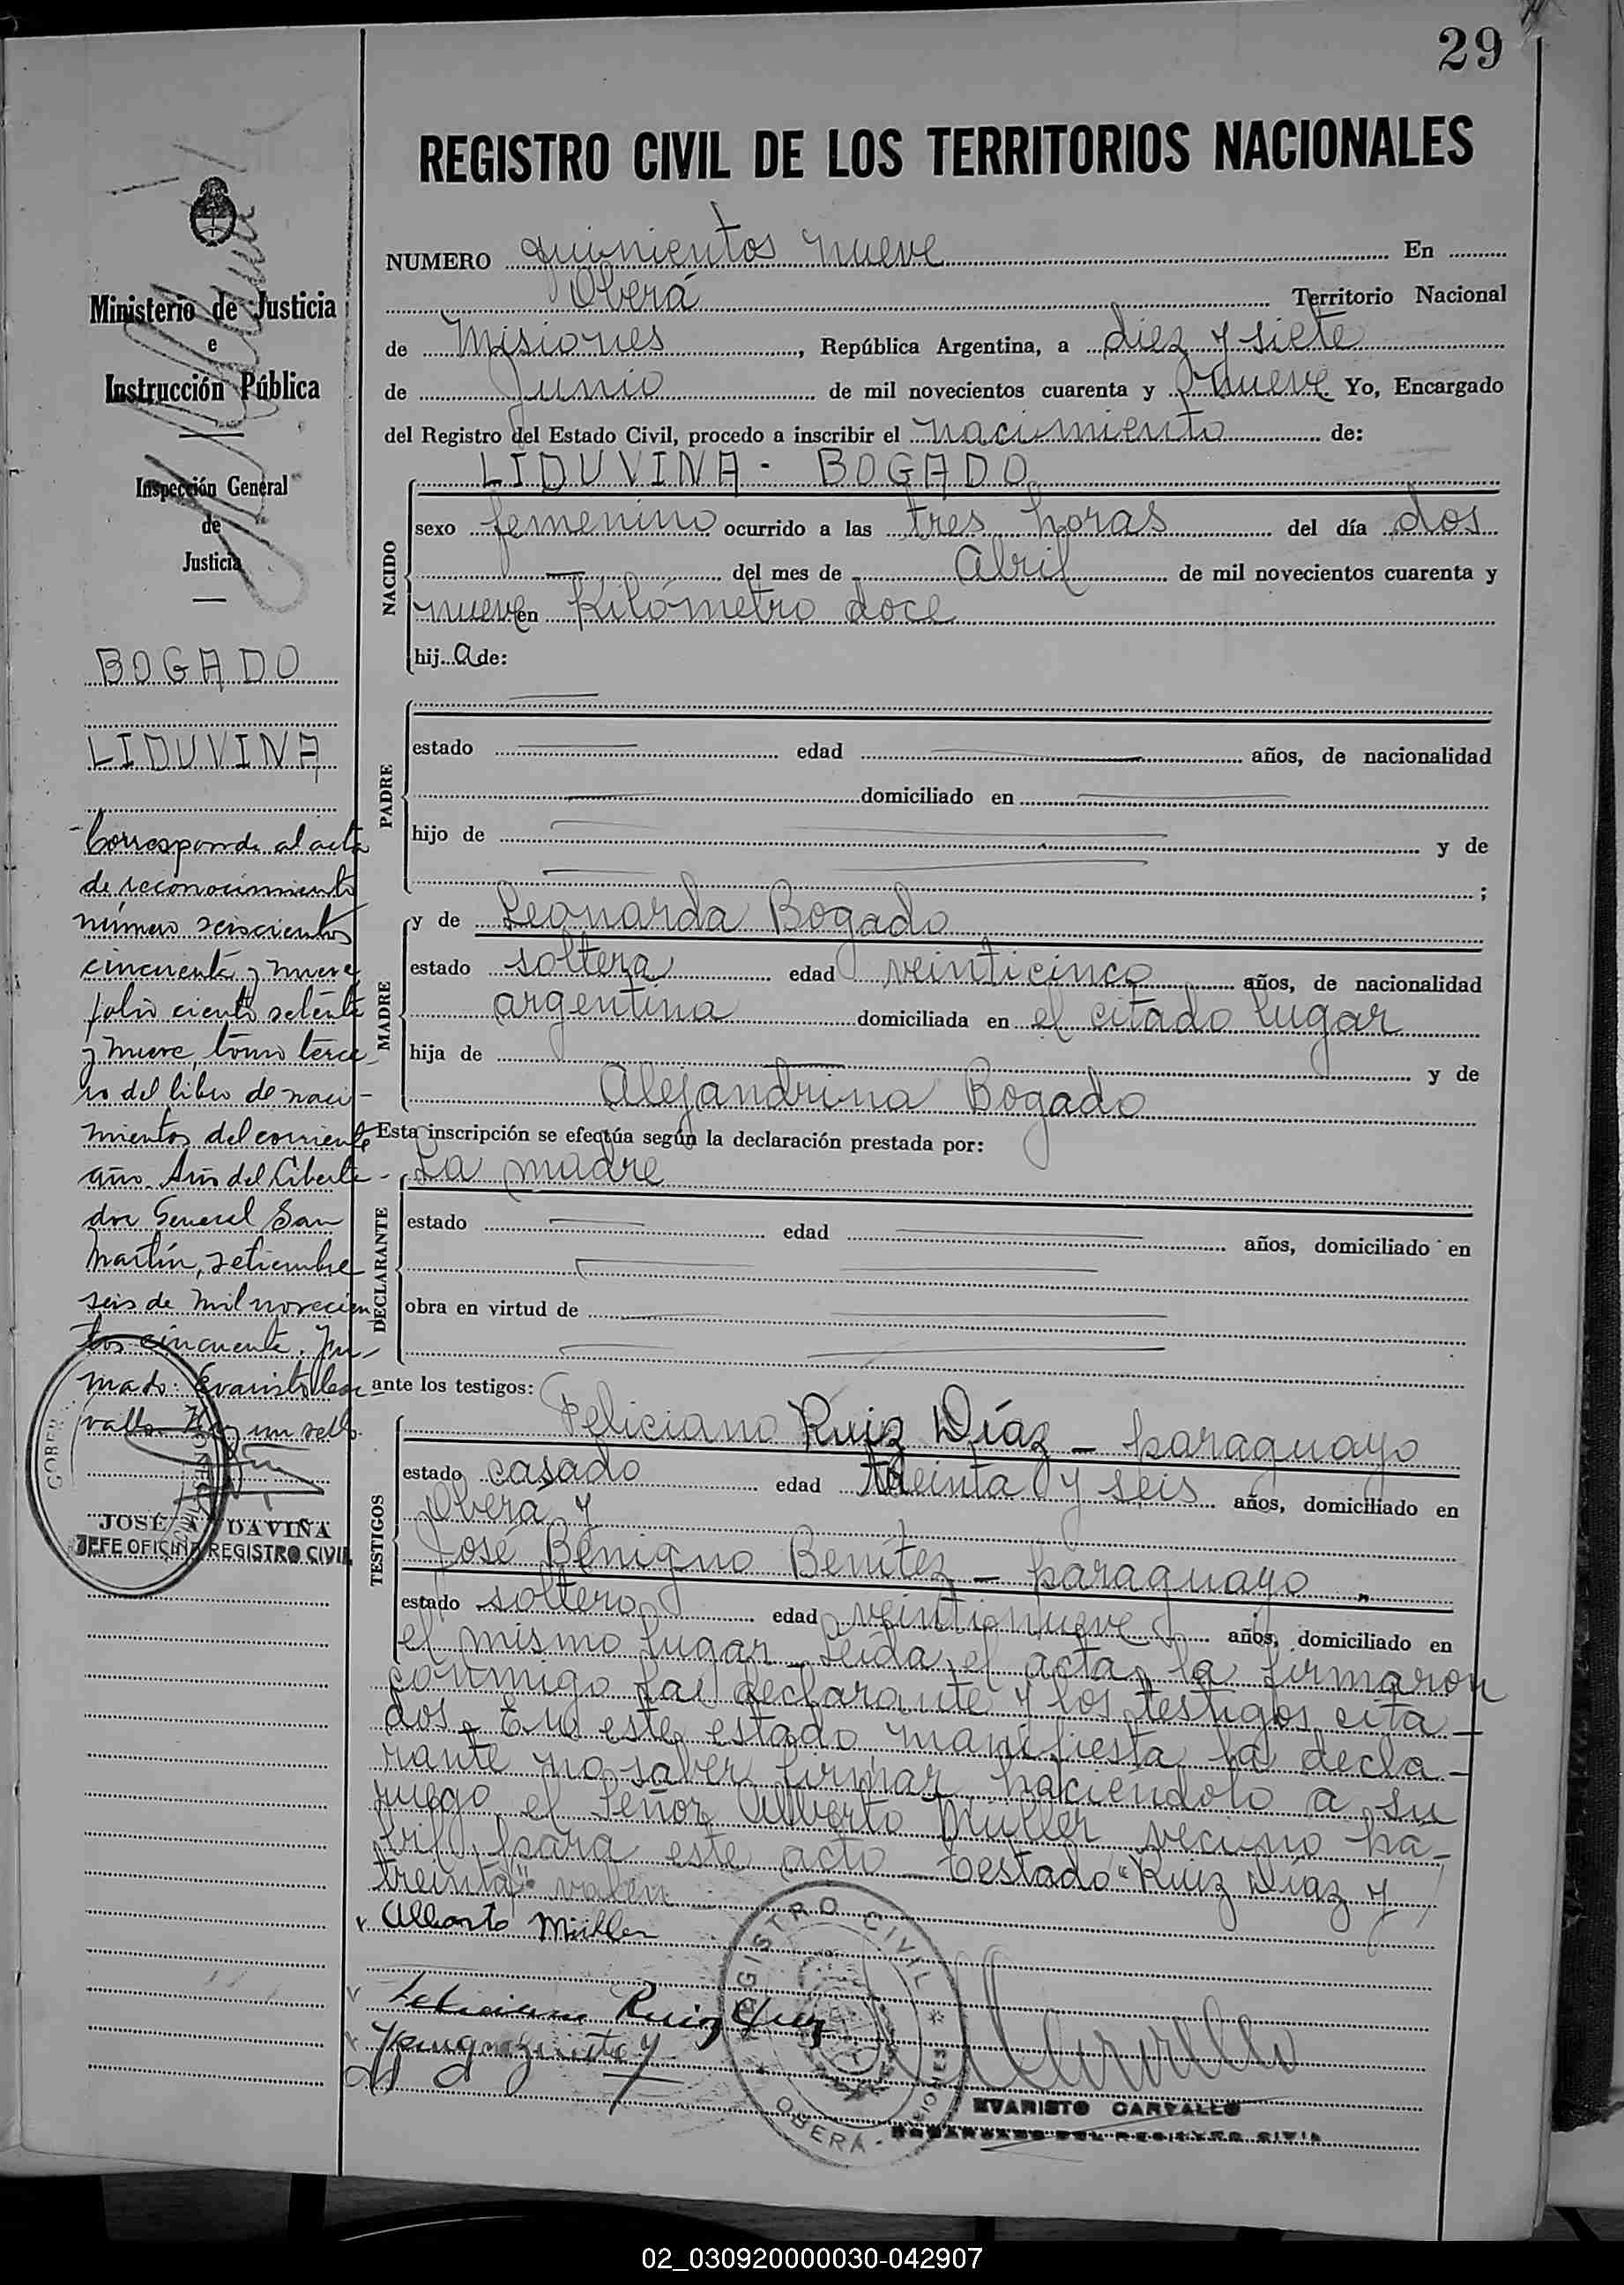 29
REGISTRO CIVIL DE LOS TERRITORIOS NACIONALES
NUMERO quinientos nueve En
Oberá Territorio Nacional
de Misiones, República Argentina, a diez y siete
de Junio de mil novecientos cuarenta y nueve Yo, Encargado
del Registro del Estado Civil, procedo a inscribir el nacimiento de:
LIDUVINA - BOGADO
NACIDO
sexo femenino ocurrido a las tres horas del día dos
del mes de Abril de mil novecientos cuarenta y
nueve en Kilómetro doce
hij a de:
PADRE
estado edad años, de nacionalidad
domiciliado en
hijo de y de
;
MADRE
y de Leonarda Bogado
estado soltera edad veinticinco años, de nacionalidad
argentina domiciliada en el citado lugar
hija de y de
Alejandrina Bogado
Esta inscripción se efectúa según la declaración prestada por:
La madre
DECLARANTE
estado edad años, domiciliado en
obra en virtud de
ante los testigos:
TESTIGOS
Feliciano Ruiz Díaz - paraguayo
estado casado edad treinta y seis años, domiciliado en
Oberá y
José Benigno Benítez - paraguayo
estado soltero edad veintinueve años, domiciliado en
el mismo lugar Leída el acta, la firmaron
conmigo la declarante y los testigos cita-
dos. En este estado manifiesta la decla-
rante no saber firmar haciéndolo a su
ruego el Señor Alberto Müller vecino há-
bil para este acto - Testado "Ruiz Díaz y
treinta" valen
Alberto Müller
Feliciano Ruiz Diaz
EVARISTO CARVALLO
ENCARGADO DEL REGISTRO CIVIL
REGISTRO CIVIL
OBERÁ - MISIONES
Ministerio de Justicia
e
Instrucción Pública
Inspección General
de
Justicia
BOGADO
LIDUVINA
Corresponde al acta
de reconocimiento
número seiscientos
cincuenta y nueve
folio ciento setenta
y nueve, tomo terce-
ro del libro de naci-
mientos del corriente
año. Año del Liberta-
dor General San
Martín, setiembre
seis de mil novecien
tos cincuenta. Fir-
mado: Evaristo Car-
vallo. Hay un sello.
JOSÉ DAVIÑA
JEFE OFICINA REGISTRO CIVIL
02_030920000030-042907